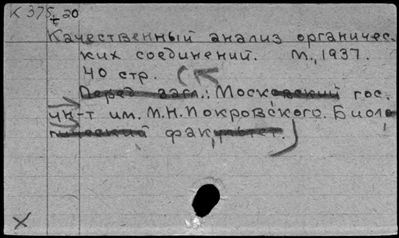 К 375
т 20
Качественный анализ органичес-
ких соединений. М., 1937.
40 стр. (
Перед загл.: Московский гос.
ун-т им. М.Н. Покровского. Биоло-
гический факультет.)
X